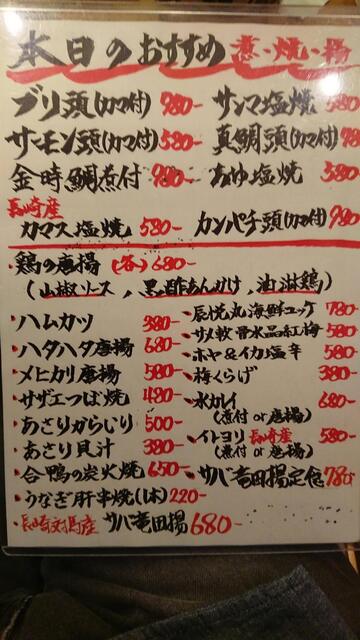 本日のおすすめ 煮・焼・揚
ブリ頭(カマ付) 980-
サンマ塩焼 580-
サーモン頭(カマ付) 580-
真鯛頭(カマ付) 980
金時鯛煮付 980-
あゆ塩焼 580-
長崎産
カマス塩焼 580-
カンパチ頭(カマ付) 980
・鶏の唐揚 (各) 680-
(山椒ソース、黒酢あんかけ、油淋鶏)
・ハムカツ 380-
・ハタハタ唐揚 680-
・メヒカリ唐揚 580-
・サザエつぼ焼 480-
・あさりからいり 500-
・あさり貝汁 380-
・合鴨の炭火焼 650-
・うなぎ肝串焼(1本) 220-
・長崎対馬産 サバ竜田揚 680-
・辰悦丸海鮮ユッケ 780-
・サメ軟骨水晶紅梅 580-
・ホヤ&イカ塩辛 580-
・梅くらげ 380-
・水カレイ 680-
(煮付 or 唐揚)
・イトヨリ 長崎産 580-
(煮付 or 唐揚)
・サバ竜田揚定食 780-